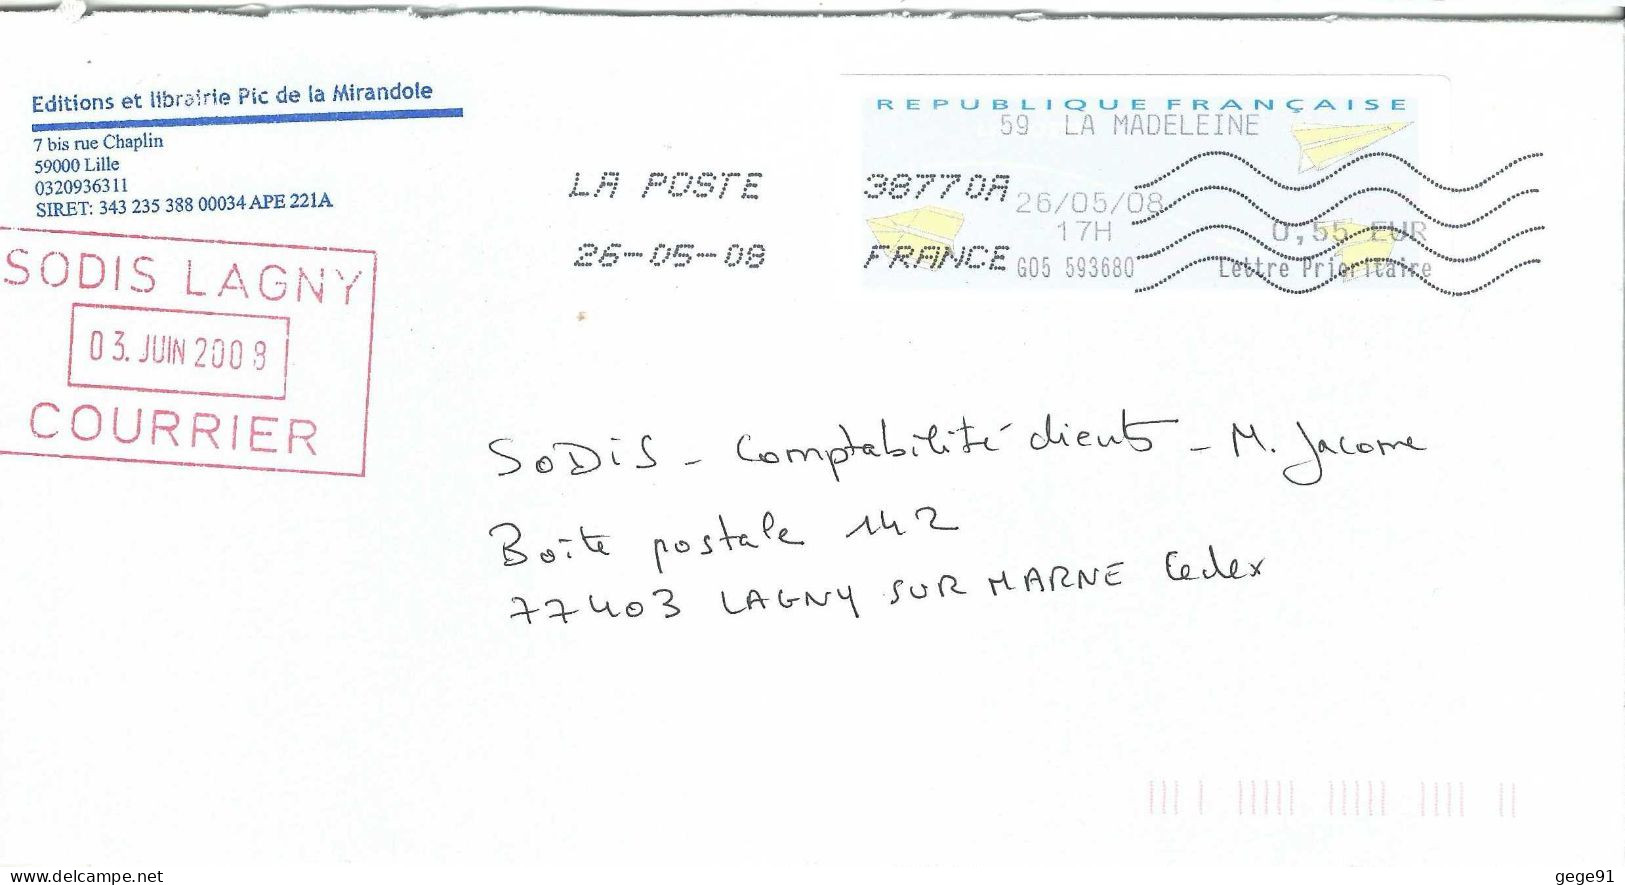 Editions et librairie Pic de la Mirandole
7 bis rue Chaplin
59000 Lille
0320936311
SIRET: 343 235 388 00034 APE 221A
REPUBLIQUE FRANÇAISE
59 LA MADELEINE
LA POSTE
38770A
26/05/08
17H
0,55 EUR
26-05-08
FRANCE
G05 593680
Lettre Prioritaire
SODIS LAGNY
03. JUIN 2008
COURRIER
SODiS - Comptabilité clients - M. Jacome
Boîte postale 142
77403 LAGNY SUR MARNE Cedex
delcampe.net
gege91